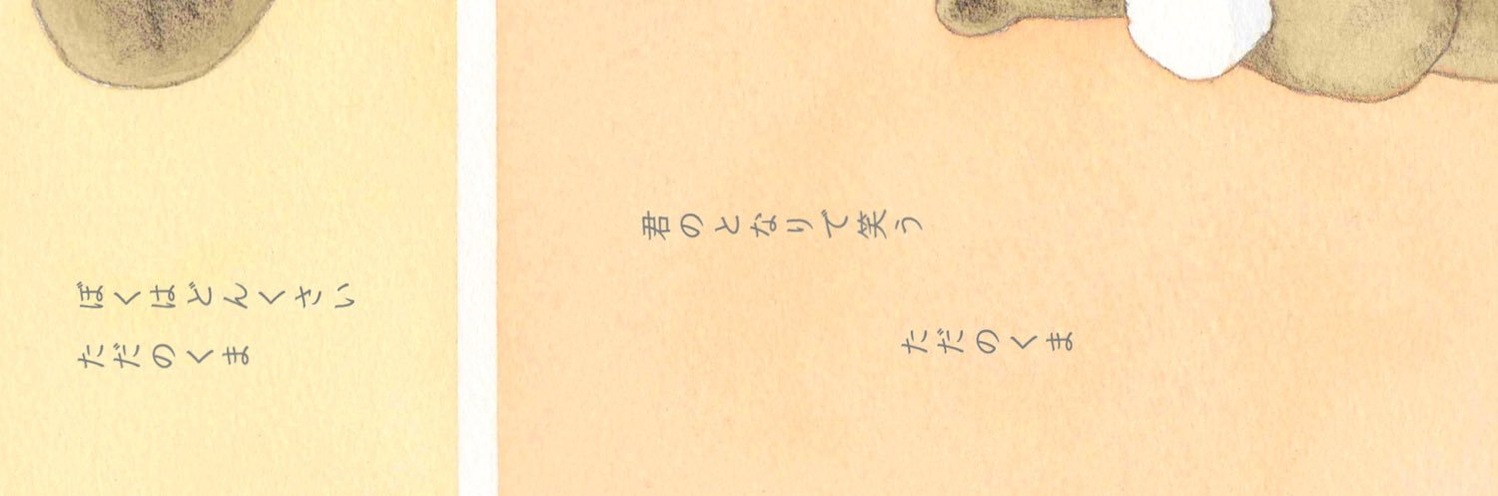 ぼくはどんくさい
ただのくま
君のとなりで笑う
ただのくま